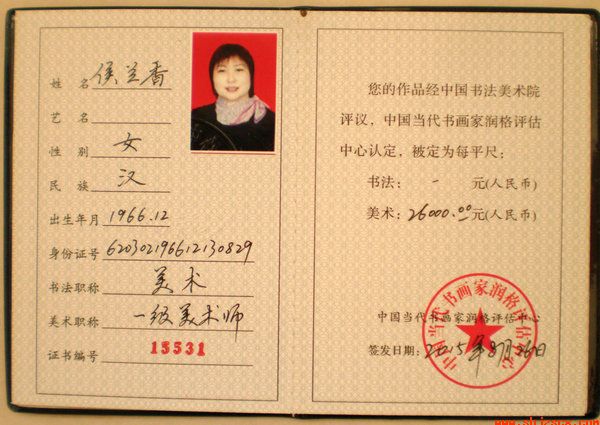 姓 名 侯兰香
艺 名
性 别 女
民 族 汉
出生年月 1966.12
身份证号 620302196612130829
书法职称 美术
美术职称 一级美术师
证书编号 15531
您的作品经中国书法美术院
评议，中国当代书画家润格评估
中心认定，被定为每平尺：
书法： - 元(人民币)
美术：26000.00元(人民币)
中国当代书画家润格评估中心
中国当代书画家润格评估中心
签发日期：2015年8月26日